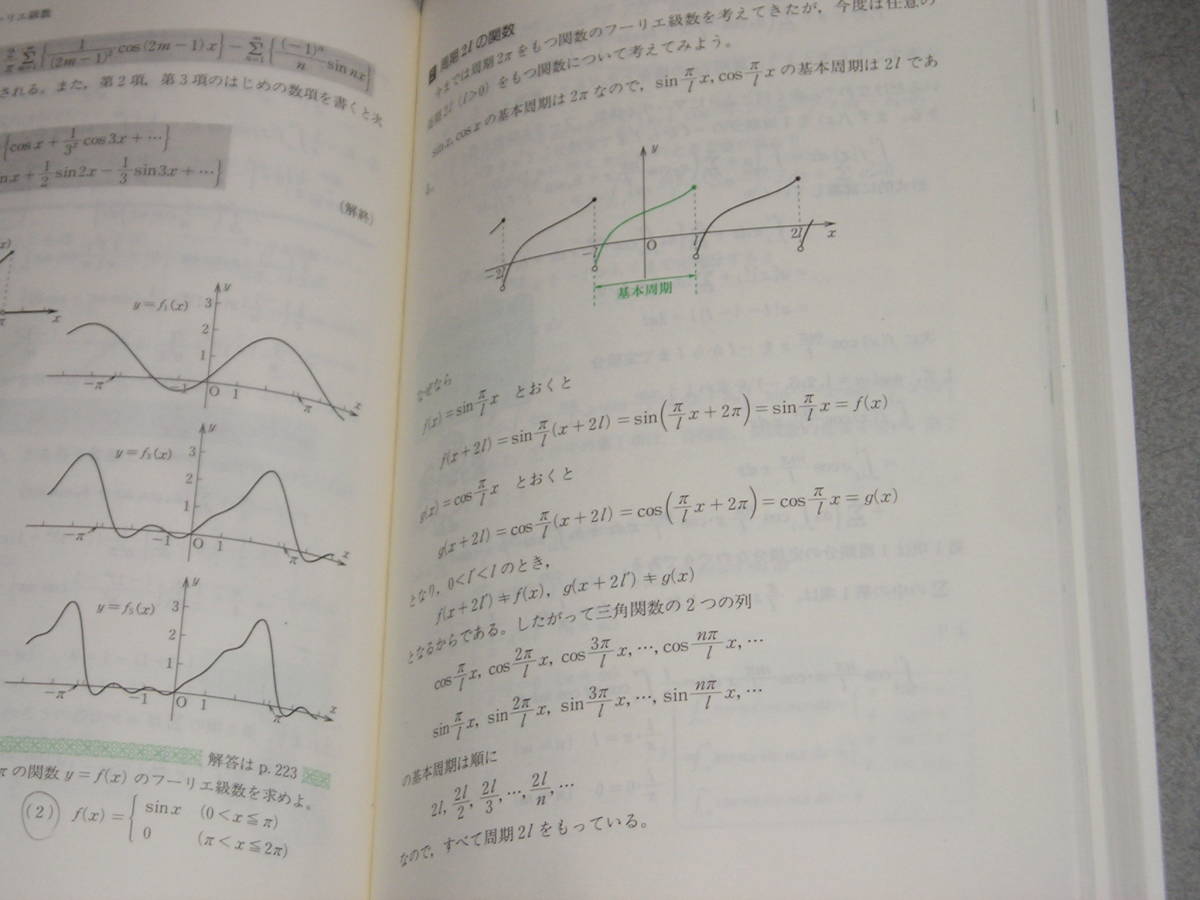 ーリエ級数
2/π Σ_{m=1}^{∞} { 1/(2m−1)² cos(2m−1)x } − Σ_{n=1}^{∞} { (−1)ⁿ/n sin nx }
される。また，第2項，第3項のはじめの数項を書くと次
{cos x + 1/3² cos 3x + ⋯}
n x + 1/2 sin 2x − 1/3 sin 3x + ⋯}
(解終)
x)
π x
y
y = f₁(x)
3
2
1
−π −1 O 1 π x
y
y = f₃(x)
3
2
1
−π −1 O 1 π x
y
y = f₅(x)
3
2
1
−π −1 O 1 π x
解答は p.223
π の関数 y = f(x) のフーリエ級数を求めよ。
(2) f(x) = { sin x (0 < x ≦ π)
0 (π < x ≦ 2π)
周期 2l の関数
今までは周期 2π をもつ関数のフーリエ級数を考えてきたが，今度は任意の
周期 2l (l>0) をもつ関数について考えてみよう。
sin x, cos x の基本周期は 2π なので，sin π/l x, cos π/l x の基本周期は 2l であ
る。
y
−2l −l O l 2l x
基本周期
なぜなら
f(x) = sin π/l x とおくと
f(x+2l) = sin π/l (x+2l) = sin(π/l x + 2π) = sin π/l x = f(x)
g(x) = cos π/l x とおくと
g(x+2l) = cos π/l (x+2l) = cos(π/l x + 2π) = cos π/l x = g(x)
となり，0 < l′ < l のとき，
f(x+2l′) ≠ f(x)，g(x+2l′) ≠ g(x)
となるからである。したがって三角関数の2つの列
cos π/l x, cos 2π/l x, cos 3π/l x, ⋯, cos nπ/l x, ⋯
sin π/l x, sin 2π/l x, sin 3π/l x, ⋯, sin nπ/l x, ⋯
の基本周期は順に
2l, 2l/2, 2l/3, ⋯, 2l/n, ⋯
なので，すべて周期 2l をもっている。